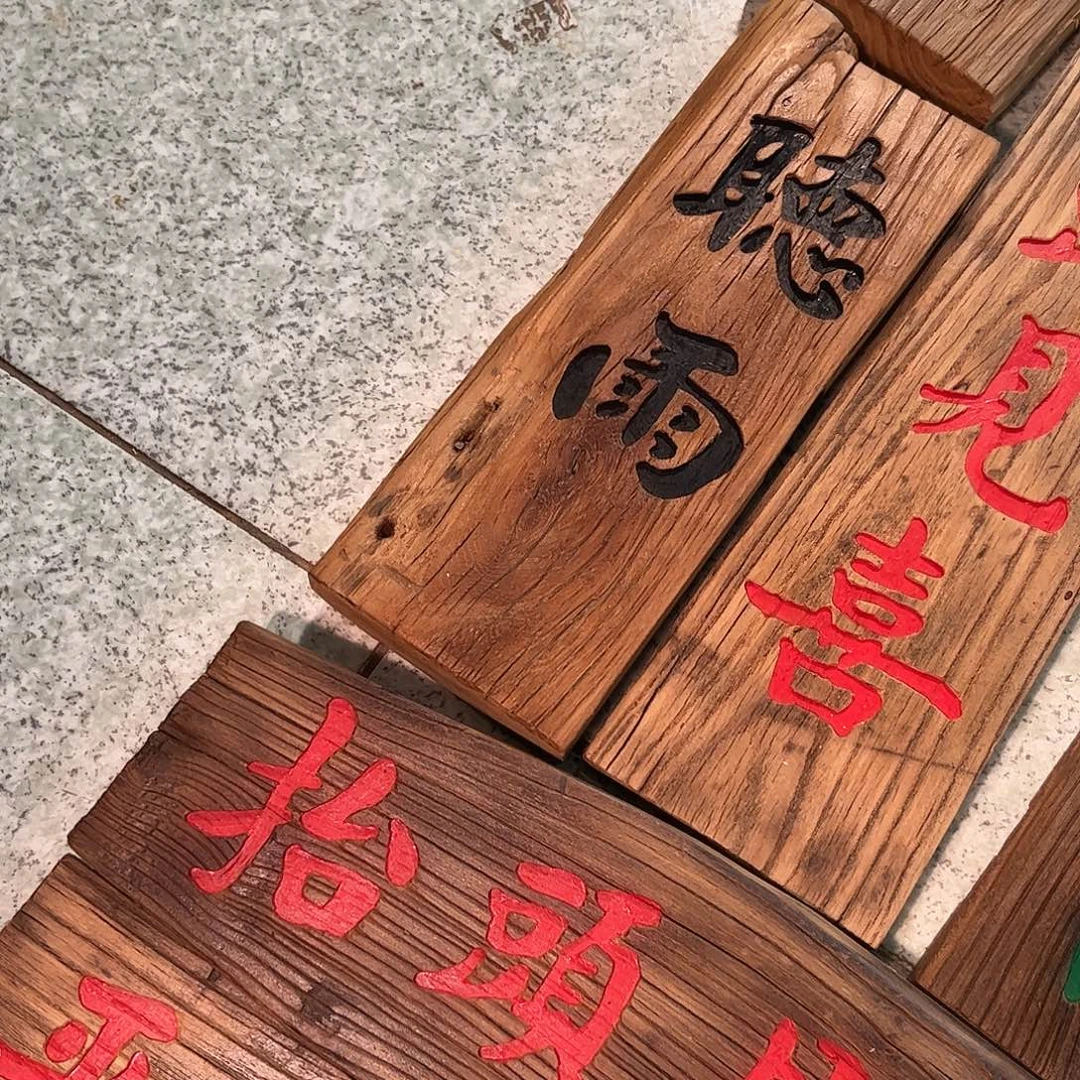 聽雨
見喜
抬頭